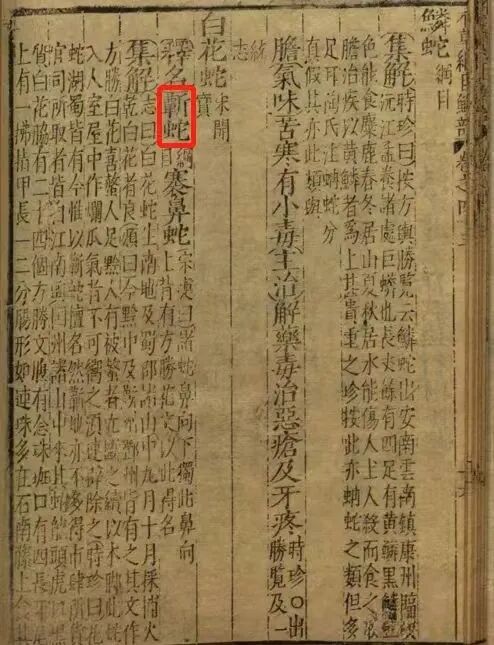 鱗蛇綱目
集解時珍曰按方輿勝覽云鱗蛇出安南雲南鎮康州臨
沅江孟養諸處巨蟒也長丈餘有四足有黃鱗黑鱗
色能食麋鹿春冬居山夏秋居水能傷人土人殺而食之
膽治疾以黃鱗者為上甚貴重之珍按此亦蚺蛇之類但多
足耳陶氏注蚺蛇分
真假其亦此類與
膽氣味苦寒有小毒主治解藥毒治惡瘡及牙疼時珍○出
勝覽及一
統
志
白花蛇宋開寶
釋名蘄蛇綱目褰鼻蛇宗奭曰諸蛇鼻向下獨此鼻向
上背有方勝花文以此得名
集解志曰白花蛇生南地及蜀郡諸山中九月十月採捕火
乾白花者良頌曰今黔中及蘄州鄧州皆有之其文作
方勝白花喜螫人足黔人有被螫者立斷之續以木脚此蛇
入人室屋中作爛瓜氣者不可嚮之須速辟除之時珍曰花
蛇湖蜀皆有今惟以蘄蛇擅名然蘄地亦不多得市肆所貨
官司所取者皆自江南興國州諸山中來其蛇龍頭虎口黑
質白花脇有二十四個方勝文腹有念珠斑口有四長牙尾
上有一拂指甲長一二分腸形如連珠多在石南藤上食其